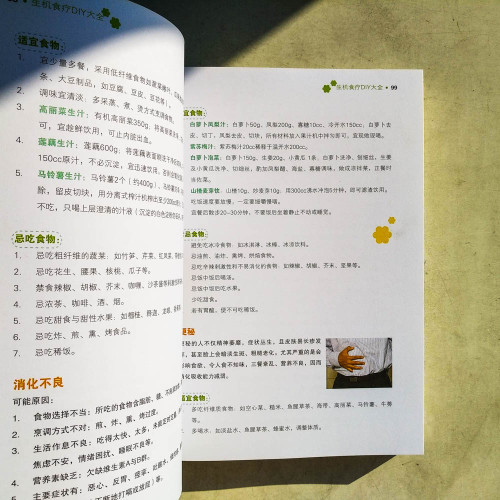 生机食疗DIY大全
适宜食物:
1. 宜少量多餐，采用低纤维食物如
条、大豆制品，如豆腐、豆皮、豆花等
2. 调味宜清淡：多采蒸、煮、烫方式
3. 高丽菜生汁：有机高丽菜350g，将高丽菜
可，宜趁鲜饮用，可止内疡出血。
4. 莲藕生汁：莲藕600g，将莲藕表面
150cc原汁，不必沉淀，宜迅速饮用。
5. 马铃薯生汁：马铃薯2个（约400g），马铃薯
除，留皮切块，用分离式榨汁机榨出至少200cc
不吃，只喝上层澄清的汁液（沉淀的白色
忌吃食物:
1. 忌吃粗纤维的蔬菜：如竹笋、芹菜、
2. 忌吃花生、腰果、核桃、瓜子等。
3. 禁食辣椒、胡椒、芥末、咖喱、沙茶酱等
4. 忌浓茶、咖啡、酒、烟。
5. 忌吃甜食与甜性水果：如榴梿、
6. 忌吃炸、煎、熏、烤食品。
7. 忌吃稀饭。
消化不良
可能原因:
1. 食物选择不当：所吃的食物含脂肪、糖、
2. 烹调方式不对：煎、炸、熏、烤过度。
3. 生活作息不良：吃得太快、太多，
焦虑不安，情绪困扰、睡眠不良等。
4. 营养素缺乏：欠缺维生素A与B群。
5. 主要症状有：恶心、反胃、
不断地打嗝或放屁）等。
生机食疗DIY大全 • 99
宜食物:
白萝卜凤梨汁：白萝卜50g、凤梨200g、寡糖10cc、冷开水150cc，白萝卜去
皮、切丁，凤梨去皮、切块，所有材料放入果汁机中拌匀即可，宜现做现喝。
紫苏梅汁：紫苏梅汁20cc稀释于温开水200cc。
白萝卜泡菜：白萝卜150g、生姜20g、小黄瓜1条，白萝卜洗净、刨细丝，生姜
及小黄瓜洗净、切细丝，
山楂麦芽饮：山楂10g、炒麦芽10g，用300cc沸水冲泡5分钟，即可滤渣饮用。
吃饭速度要放慢，一定要细嚼慢咽。
宜餐后散步20~30分钟，不要饭后坐着静止不动或睡觉。
食物:
避免吃冰冷食物：如冰淇淋、冰棒、冰淡饮料。
忌油煎、油炸、熏烤、烘焙食物。
忌吃辛辣刺激性和不易消化的食物：如辣椒、胡椒、芥末、坚果等。
忌饭中饭后喝水。
忌饭中饭后吃水果。
少吃甜食。
若有胃酸，便不可吃稀饭。
便秘
秘的人不仅精神萎靡，症状丛生，且皮肤易长痘发
，甚至脸上会暗淡生斑、粗糙老化，尤其严重的是会
响食欲，令人食不知味，三餐紊乱、营养不良，因而
化吸收能力减弱。
宜食物:
多吃纤维质食物：如空心菜、糙米、鱼腥草茶、海带、高丽菜、马铃薯、牛蒡
等。
2. 多喝水，如淡盐水、鱼腥草茶、蜂蜜水，调整体质。